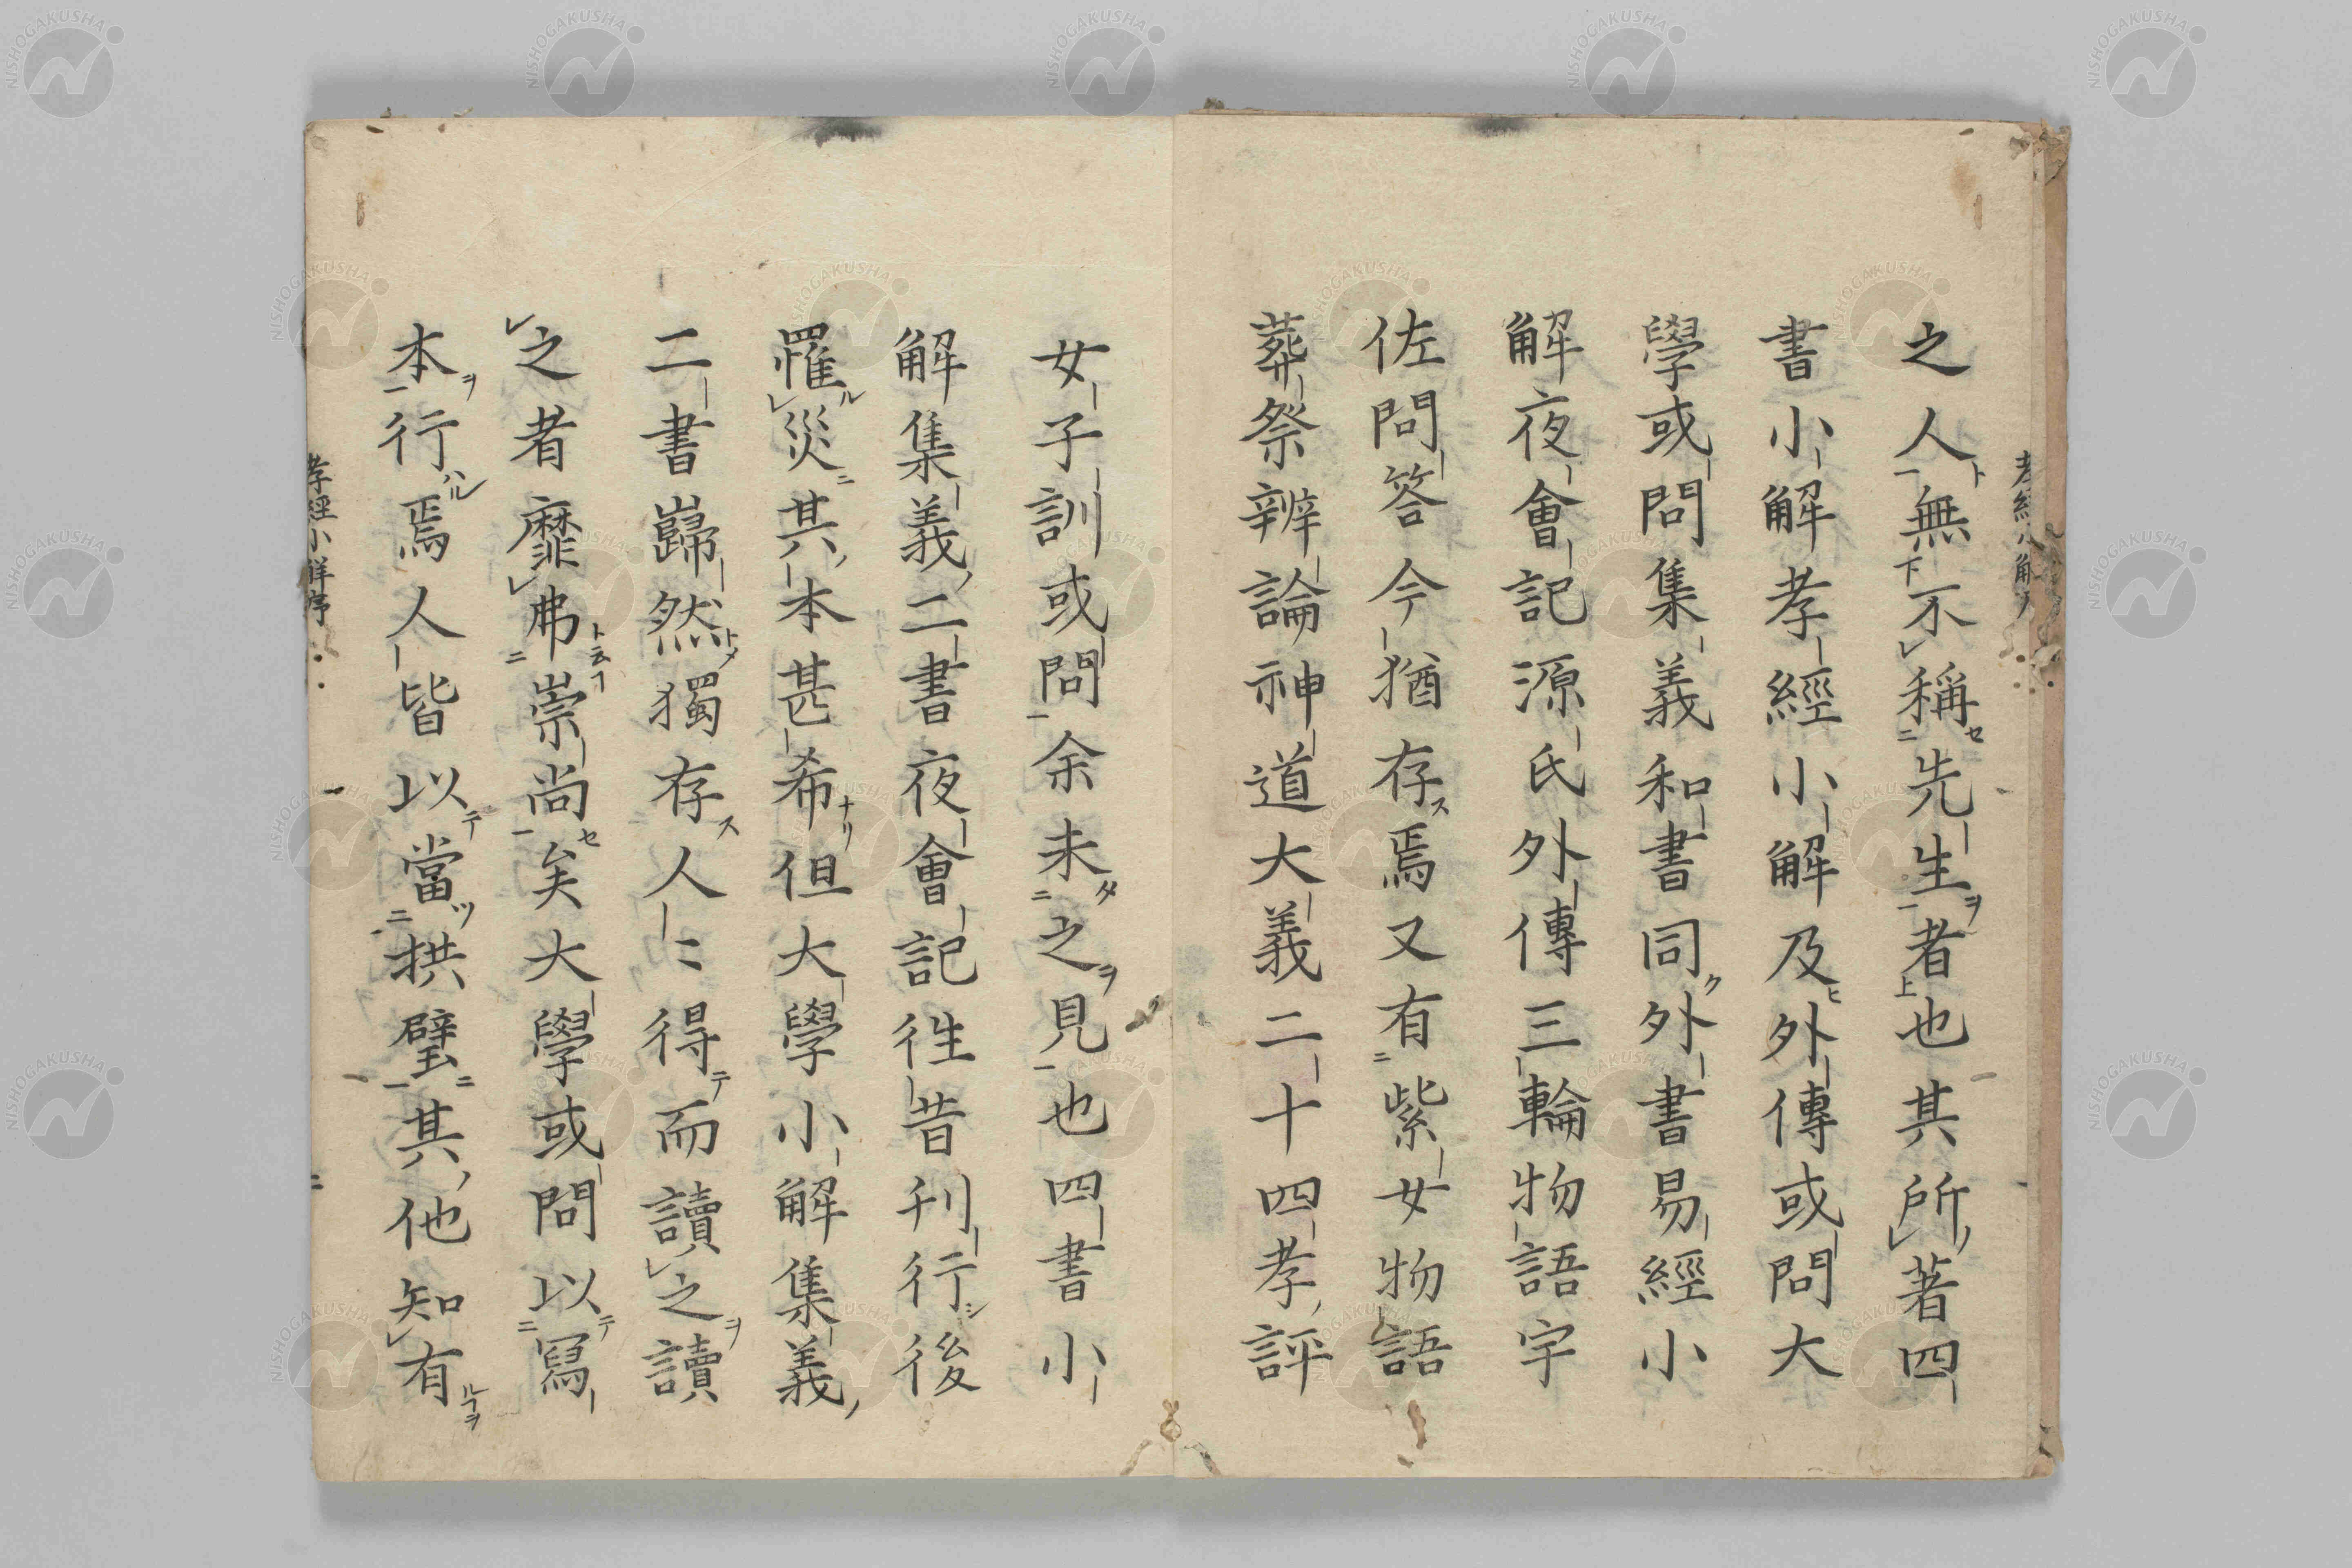 之人無不稱先生者也其所著四
書小解孝經小解及外傳或問大
學或問集義和書同外書易經小
解夜會記源氏外傳三輪物語宇
佐問答今猶存焉又有紫女物語
葬祭辨論神道大義二十四孝評
女子訓或問余未之見也四書小
解集義二書夜會記徃昔刊行後
罹災其本甚希但大學小解集義
二書巋然獨存人〻得而讀之讀
之者靡弗崇尚矣大學或問以寫
本行焉人皆以當拱璧其他知有
孝經小觧序
二